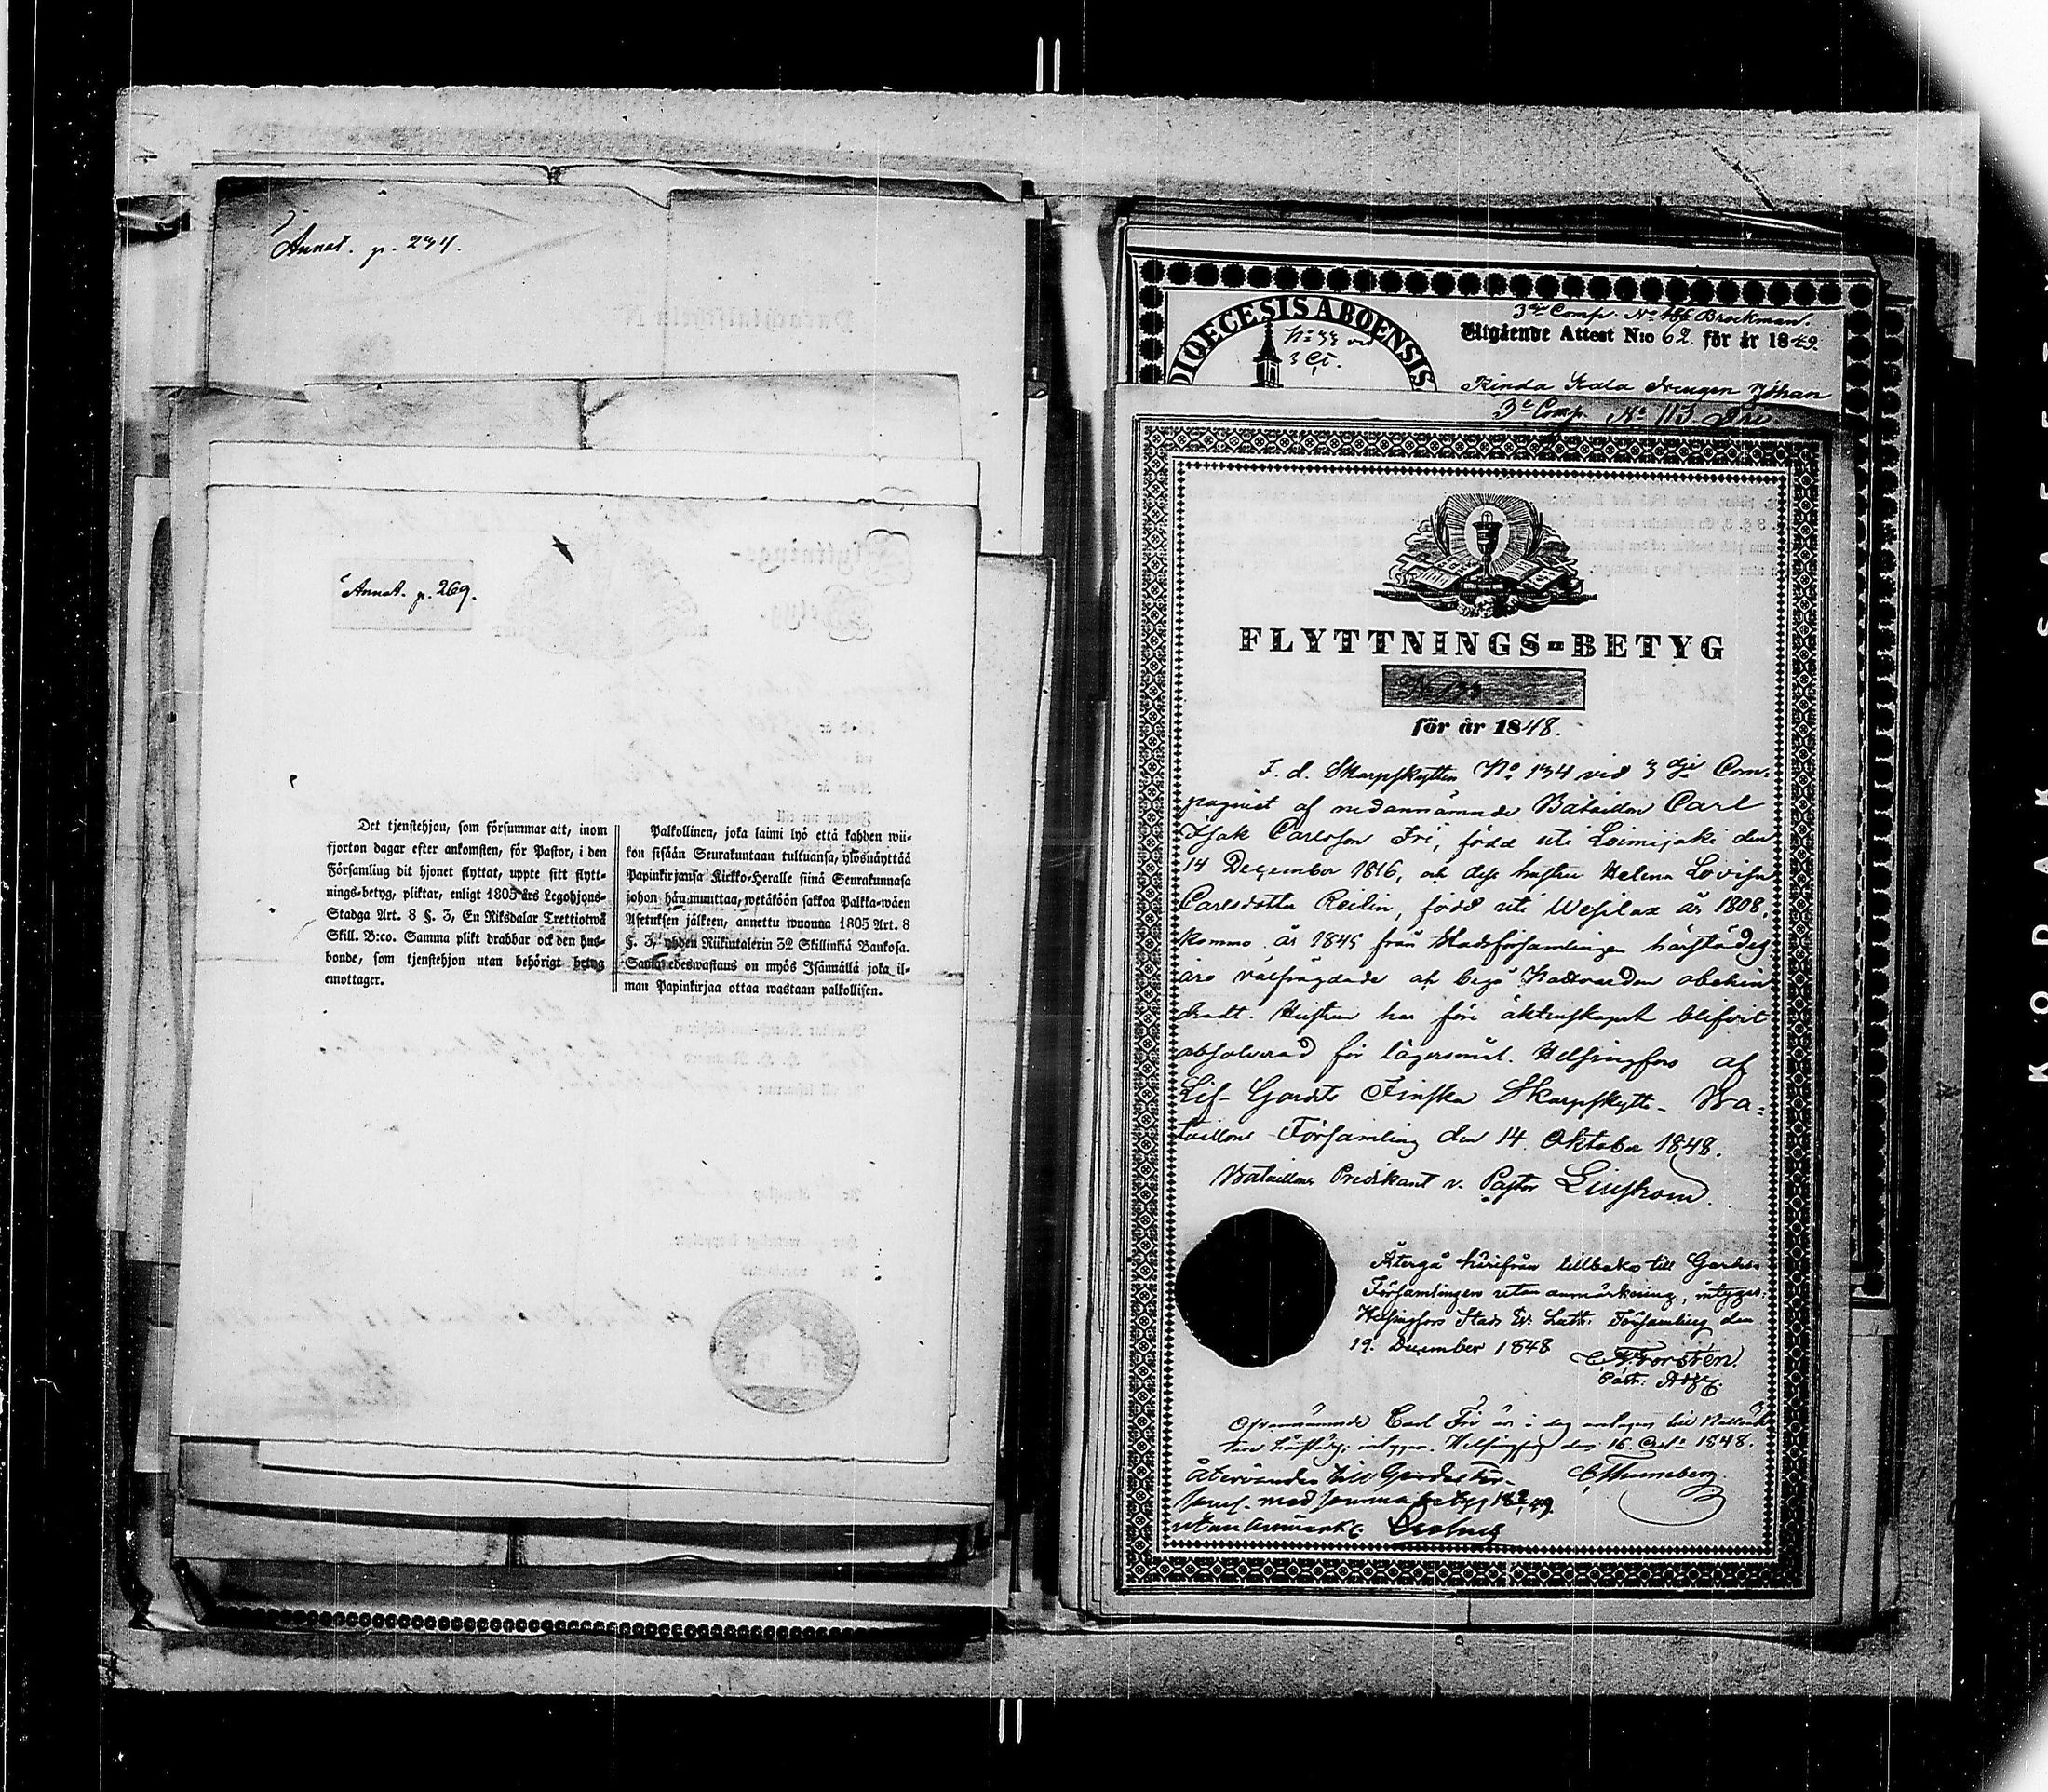 Annat. p. 234.
Annat. p. 269.
Det tjenstehjon, som försummar att, inom
fjorton dagar efter ankomsten, för Pastor, i den
Församling dit hjonet flyttat, uppte sitt flytt-
nings-betyg, pliktar, enligt 1805 års Legohjons-
Stadga Art. 8 §. 3, En Riksdalar Trettiotwå
Skill. B:co. Samma plikt drabbar ock den hus-
bonde, som tjenstehjon utan behörigt betyg
emottager.
Palkollinen, joka laimi lyö että kahden wii-
kon sisään Seurakuntaan tultuansa, ylösnäyttää
Papinkirjansa Kirkko-Heralle siinä Seurakunnasa
johon hän muuttaa, wetäköön sakkoa Palkka-wäen
Asetuksen jälkeen, annettu wuonna 1805 Art. 8
§. 3, yhden Riikintalerin 32 Skillinkiä Bankosa.
Samaedeswastaus on myös Isännällä joka il-
man Papinkirjaa ottaa wastaan palkollisen.
DIOECESIS ABOENSIS
No 33 vid
3 C.
3die Comp. No Brockman.
Utgående Attest N:o 62. för år 1849.
Johan
3e Comp. No 113 Fri
FLYTTNINGS-BETYG
No
för år 1848.
F. d. Skarpskytten No 134 vid 3dje Com-
pagniet af nedannämnde Bataillon Carl
Isak Carlsson Fri, född uti Loimijoki den
14 December 1816, och dess hustru Helena Lovisa
Carlsdotter Reilin, född uti Wesilax år 1808,
komne år 1845 från Stadsförsamlingen härstädes
äro välfrägdade och begå Nattvarden obehin
dradt. Hustrun har före äktenskapet blifvit
absolverad för lägersmål. Helsingfors af
Lif-Gardets Finska Skarpskytte-Ba-
taillons Församling den 14 Oktober 1848.
Bataillons Predikant v. Pastor
Återgå härifrån tillbaka till Gardes-
Församlingen utan anmärkning, intygar;
Helsingfors Stads Ev. Luth. Församling den
19. December 1848 Forstén.
Past. Adj.
Ofvannämnde Carl Fri är i dag antagen till
intygar. Helsingfors den 16 1848.
Återvändes till Gardes För- Thuneberg.
saml. med samma betyg 49
utan anmärkn.
KODAK SAFETY